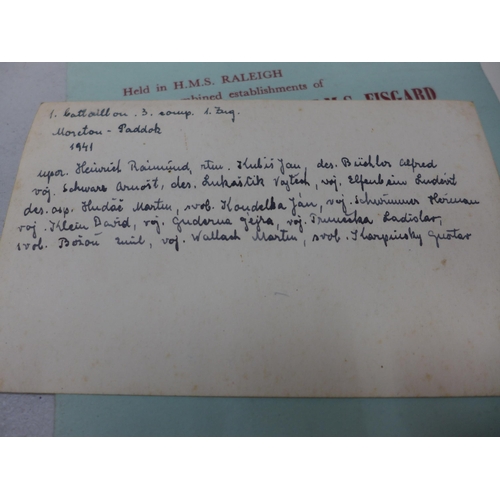 Held in H.M.S. RALEIGH
combined establishments of
H.M.S. FISGARD
1. battaillon. 3. comp. 1. Zug.
Moreton - Paddok
1941
npor. Heinrich Raimund, rtm. Kubiš Jan, des. Büchler Alfred
voj. Schwarz Arnošt, des. Lukaščik Vojtech, voj. Elfenbein Ludevit
des. asp. Hudáč Martin, svob. Koudelka Ján, voj. Schwimmer Heiman
voj. Klein David, voj. Guderna Gejza, voj. Trnuschka Ladislav,
svob. Božoň Emil, voj. Wallach Martin, svob. Karpinsky Gustav